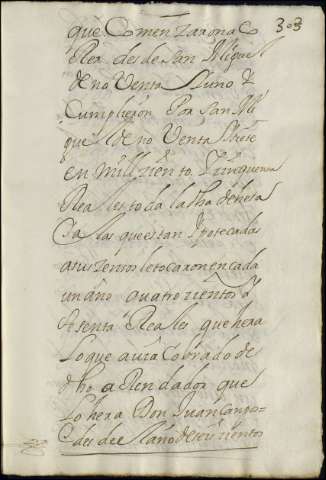 303
que Comenzaron a Co
Rer desde san Migue
de no Venta Y uno Y
Cumplieron Por San Mi
quel de no Venta Y siete
en mill ziento Y zinquenta
Reales toda la dha dehesa
Y a las questan Ypotecadas
a sus zensos le tocaron en cada
un año quatrozientos Y
sesenta Reales que hera
Lo que auia Cobrado de
dho aRendador que
Lo hera Don Juan Campo
de el año de seiszientos